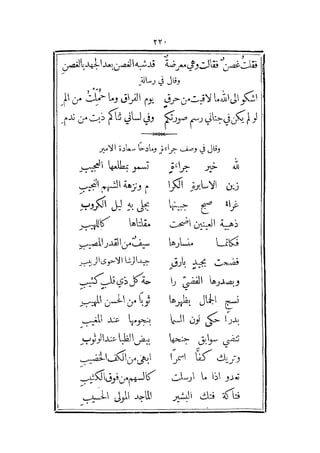 ٢٢٠
فقلت غصنٌ فقالت وهي معرضة قد شبه الغصن بعد الجهد بالغصن
وقال في رسالة
اشكو الى الله ما لاقيت من حرقٍ يوم الفراق وما حُمِّلتُ من الم
لو لم يكن في جناني رسم صورتكم وفي لساني ثناكم ذبت من ندم
وقال في وصف جراءةٍ ومادحًا سعادة الامير
لله خير جراءةٍ تسمو بمطلعها العجيب
زين الاسابرة الكرا م ونزهة الشهم النجيب
غراء صبح جبينها يجلى به ليل الكروب
ذهبية العينين اضحت مقلتاها كاللهيب
فكانما منسارها سيفٌ من القدر المصيب
فضحت بجيدٍ بارقٍ جيد الرشا الاحوى الربيب
وبصدرها الفضيّ را حة كل ذي قلب كئيب
نسج الجمال بظهرها ثوبًا من الحسن المهيب
بدرًا حكى لون السما بنجومها عند المغيب
تنضي سوابق جنحها بيض الظبا عند الوثوب
وتريك كفًّا اسمرًا ابهى من الكف الخضيب
تعدو اذا ما ارسلت كالسهم من فوق الكثيب
فتاكة فتك البشير الماجد المولى الحسيب